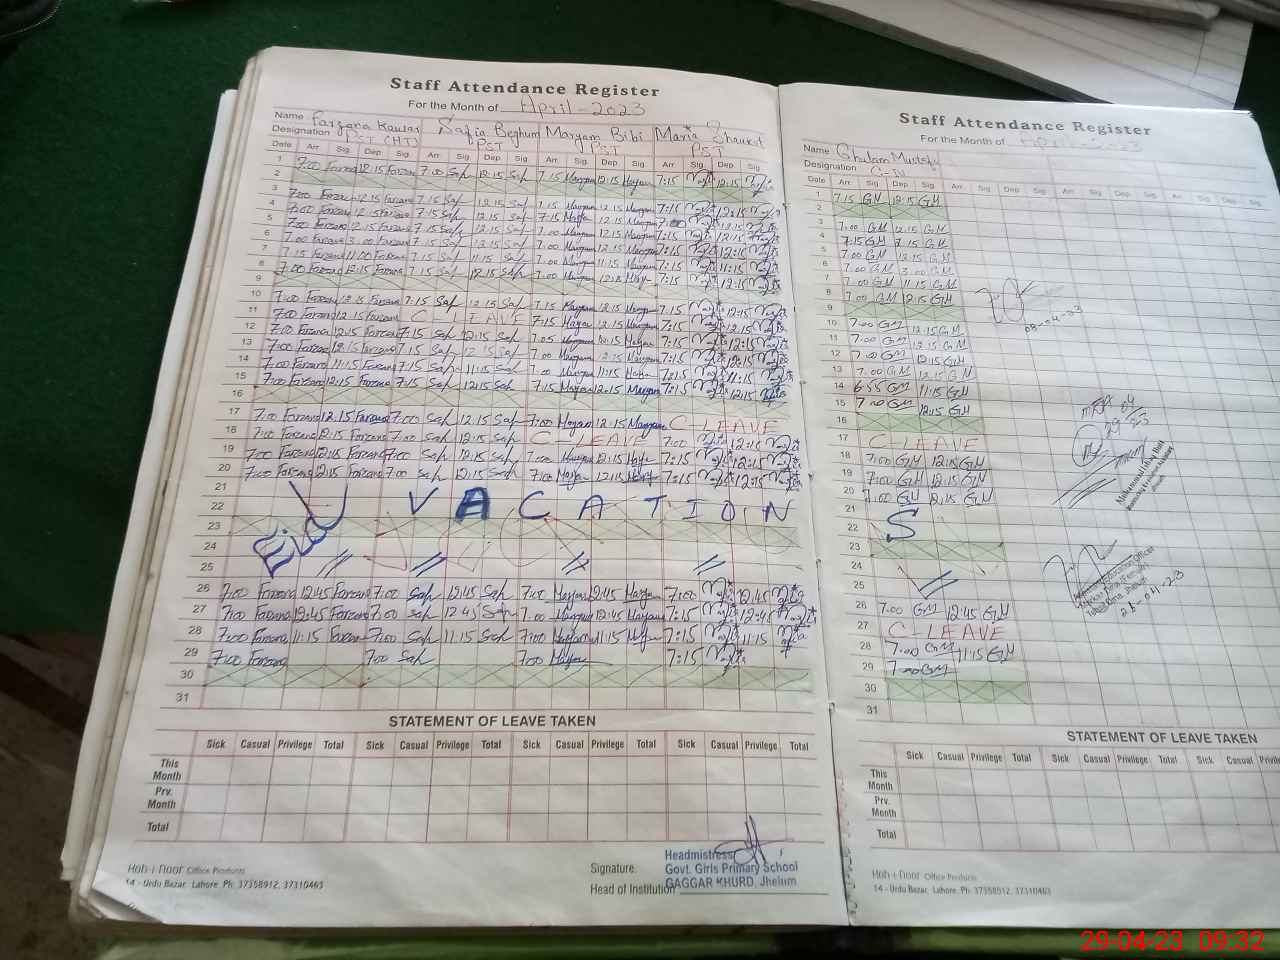 Staff Attendance Register
For the Month of April-2023
Name Farzana Kausar Safia Beghum Maryam Bibi Maria Shaukat
Designation PST (HT) PST PST PST
Date Arr Sig Dep Sig Arr Sig Dep Sig Arr Sig Dep Sig Arr Sig Dep Sig
1 7:00 Farzana 12:15 Farzana 7:00 Saf 12:15 Saf 7:15 Maryam 12:15 Maryam 7:15 12:15
2
3 7:00 Farzana 12:15 Farzana 7:15 Saf 12:15 Saf 7:15 Maryam 12:15 Maryam 7:15 12:15
4 7:00 Farzana 12:15 Farzana 7:15 Saf 12:15 Saf 7:15 Maryam 12:15 Maryam 12:15
5 7:00 Farzana 12:15 Farzana 7:15 Saf 12:15 Saf 7:00 Maryam 12:15 Maryam 7:15 12:15
6 7:00 Farzana 3:00 Farzana 7:15 Saf 12:15 Saf 7:00 Maryam 12:15 Maryam 7:15 12:15
7 7:15 Farzana 11:00 Farzana 7:15 Saf 11:15 Saf 7:00 Maryam 11:15 Maryam 7:15 11:15
8 7:00 Farzana 12:15 Farzana 7:15 Saf 12:15 Saf 7:00 Maryam Maryam 7:15 12:15
9
10 7:00 Farzana Farzana 7:15 Saf 12:15 Saf 7:15 Maryam 12:15 Maryam 7:15 12:15
11 7:00 Farzana 12:15 Farzana C-LEAVE 7:15 Maryam 12:15 Maryam 7:15 12:15
12 7:00 Farzana 12:15 Farzana 7:15 Saf 12:15 Saf 7:05 Maryam 12:15 Maryam 7:15 12:15
13 7:00 Farzana 12:15 Farzana 7:15 Saf 12:15 Saf 7:00 Maryam 12:15 Maryam 7:15 12:15
14 7:00 Farzana 11:15 Farzana 7:15 Saf 11:15 Saf 7:00 Maryam 11:15 Maryam 7:15 11:15
15 7:00 Farzana 12:15 Farzana 7:15 Saf 12:15 Saf 7:15 Maryam 12:15 Maryam 7:15 12:15
16
17 7:00 Farzana 12:15 Farzana 7:00 Saf 12:15 Saf 7:00 Maryam 12:15 Maryam C-LEAVE
18 7:00 Farzana 12:15 Farzana 7:00 Saf 12:15 Saf C-LEAVE 7:00 12:15
19 7:00 Farzana 12:15 Farzana 7:00 Saf 12:15 Saf 7:00 Maryam 12:15 Maryam 7:15 12:15
20 7:00 Farzana 12:15 Farzana 7:00 Saf 12:15 Saf 7:00 Maryam 12:15 Maryam 7:15 12:15
21
22 VACATION
23
24
25
26 7:00 Farzana 12:45 Farzana 7:00 Saf 12:45 Saf 7:00 Maryam 12:45 Maryam 7:00 12:45
27 7:00 Farzana 12:45 Farzana 7:00 Saf 12:45 Saf 7:00 Maryam 12:45 Maryam 7:15 12:45
28 7:00 Farzana 11:15 Farzana 7:00 Saf 11:15 Saf 7:00 Maryam 11:15 Maryam 7:15 11:15
29 7:00 Farzana 7:00 Saf 7:00 Maryam 7:15
30
31
STATEMENT OF LEAVE TAKEN
Sick Casual Privilege Total Sick Casual Privilege Total Sick Casual Privilege Total Sick Casual Privilege Total
This Month
Prv. Month
Total
Headmistress
Signature: Govt. Girls Primary School
Head of Institution GAGGAR KHURD, Jhelum
Office Products
14 - Urdu Bazar, Lahore. Ph: 37358912, 37310463
Staff Attendance Register
For the Month of April-2023
Name Ghulam Mustafa
Designation C-IV
Date Arr Sig Dep Sig Arr Sig Dep Sig Arr Sig Dep Sig
1 7:15 GM 12:15 GM
2
3 7:00 GM 12:15 GM
4 7:15 GM 7:15 GM
5 7:00 GM 12:15 GM
6 7:00 GM 3:00 GM
7 7:00 GM 11:15 GM
8 7:00 GM 12:15 GM
9
08-04-23
10 7:00 GM 12:15 GM
11 7:00 GM 12:15 GM
12 7:00 GM 12:15 GM
13 7:00 GM 12:15 GM
14 6:55 GM 11:15 GM
15 7:00 GM 12:15 GM
16
17 C-LEAVE
18 7:00 GM 12:15 GM
19 7:00 GM 12:15 GM
20 7:00 GM 12:15 GM
21
22 S
23
24
25
26 7:00 GM 12:45 GM
27 C-LEAVE
28 7:00 GM 11:15 GM
29 7:00 GM
30
31
STATEMENT OF LEAVE TAKEN
Sick Casual Privilege Total Sick Casual Privilege Total Sick Casual
This Month
Prv. Month
Total
Office Products
14 - Urdu Bazar, Lahore. Ph: 37358912, 37310463
29-04-23 09:32